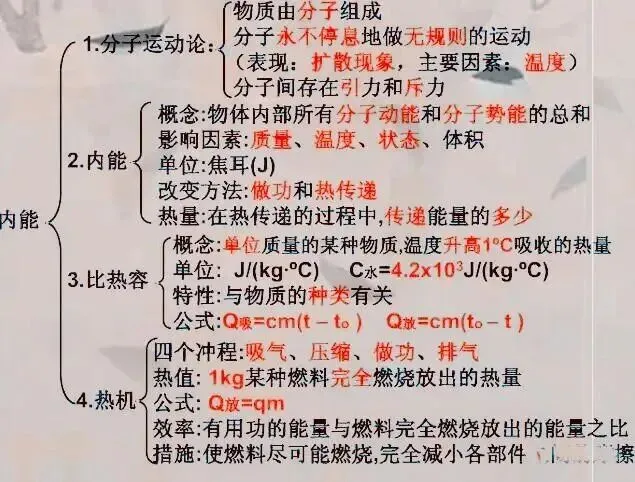 内能
1.分子运动论:
物质由分子组成
分子永不停息地做无规则的运动
(表现：扩散现象，主要因素：温度)
分子间存在引力和斥力
2.内能
概念:物体内部所有分子动能和分子势能的总和
影响因素:质量、温度、状态、体积
单位:焦耳(J)
改变方法:做功和热传递
热量:在热传递的过程中,传递能量的多少
3.比热容
概念:单位质量的某种物质,温度升高1ºC吸收的热量
单位: J/(kg·ºC) C水=4.2x10³J/(kg·ºC)
特性:与物质的种类有关
公式:Q吸=cm(t－to) Q放=cm(to－t)
4.热机
四个冲程:吸气、压缩、做功、排气
热值: 1kg某种燃料完全燃烧放出的热量
公式: Q放=qm
效率:有用功的能量与燃料完全燃烧放出的能量之比
措施:使燃料尽可能燃烧,完全减小各部件 擦